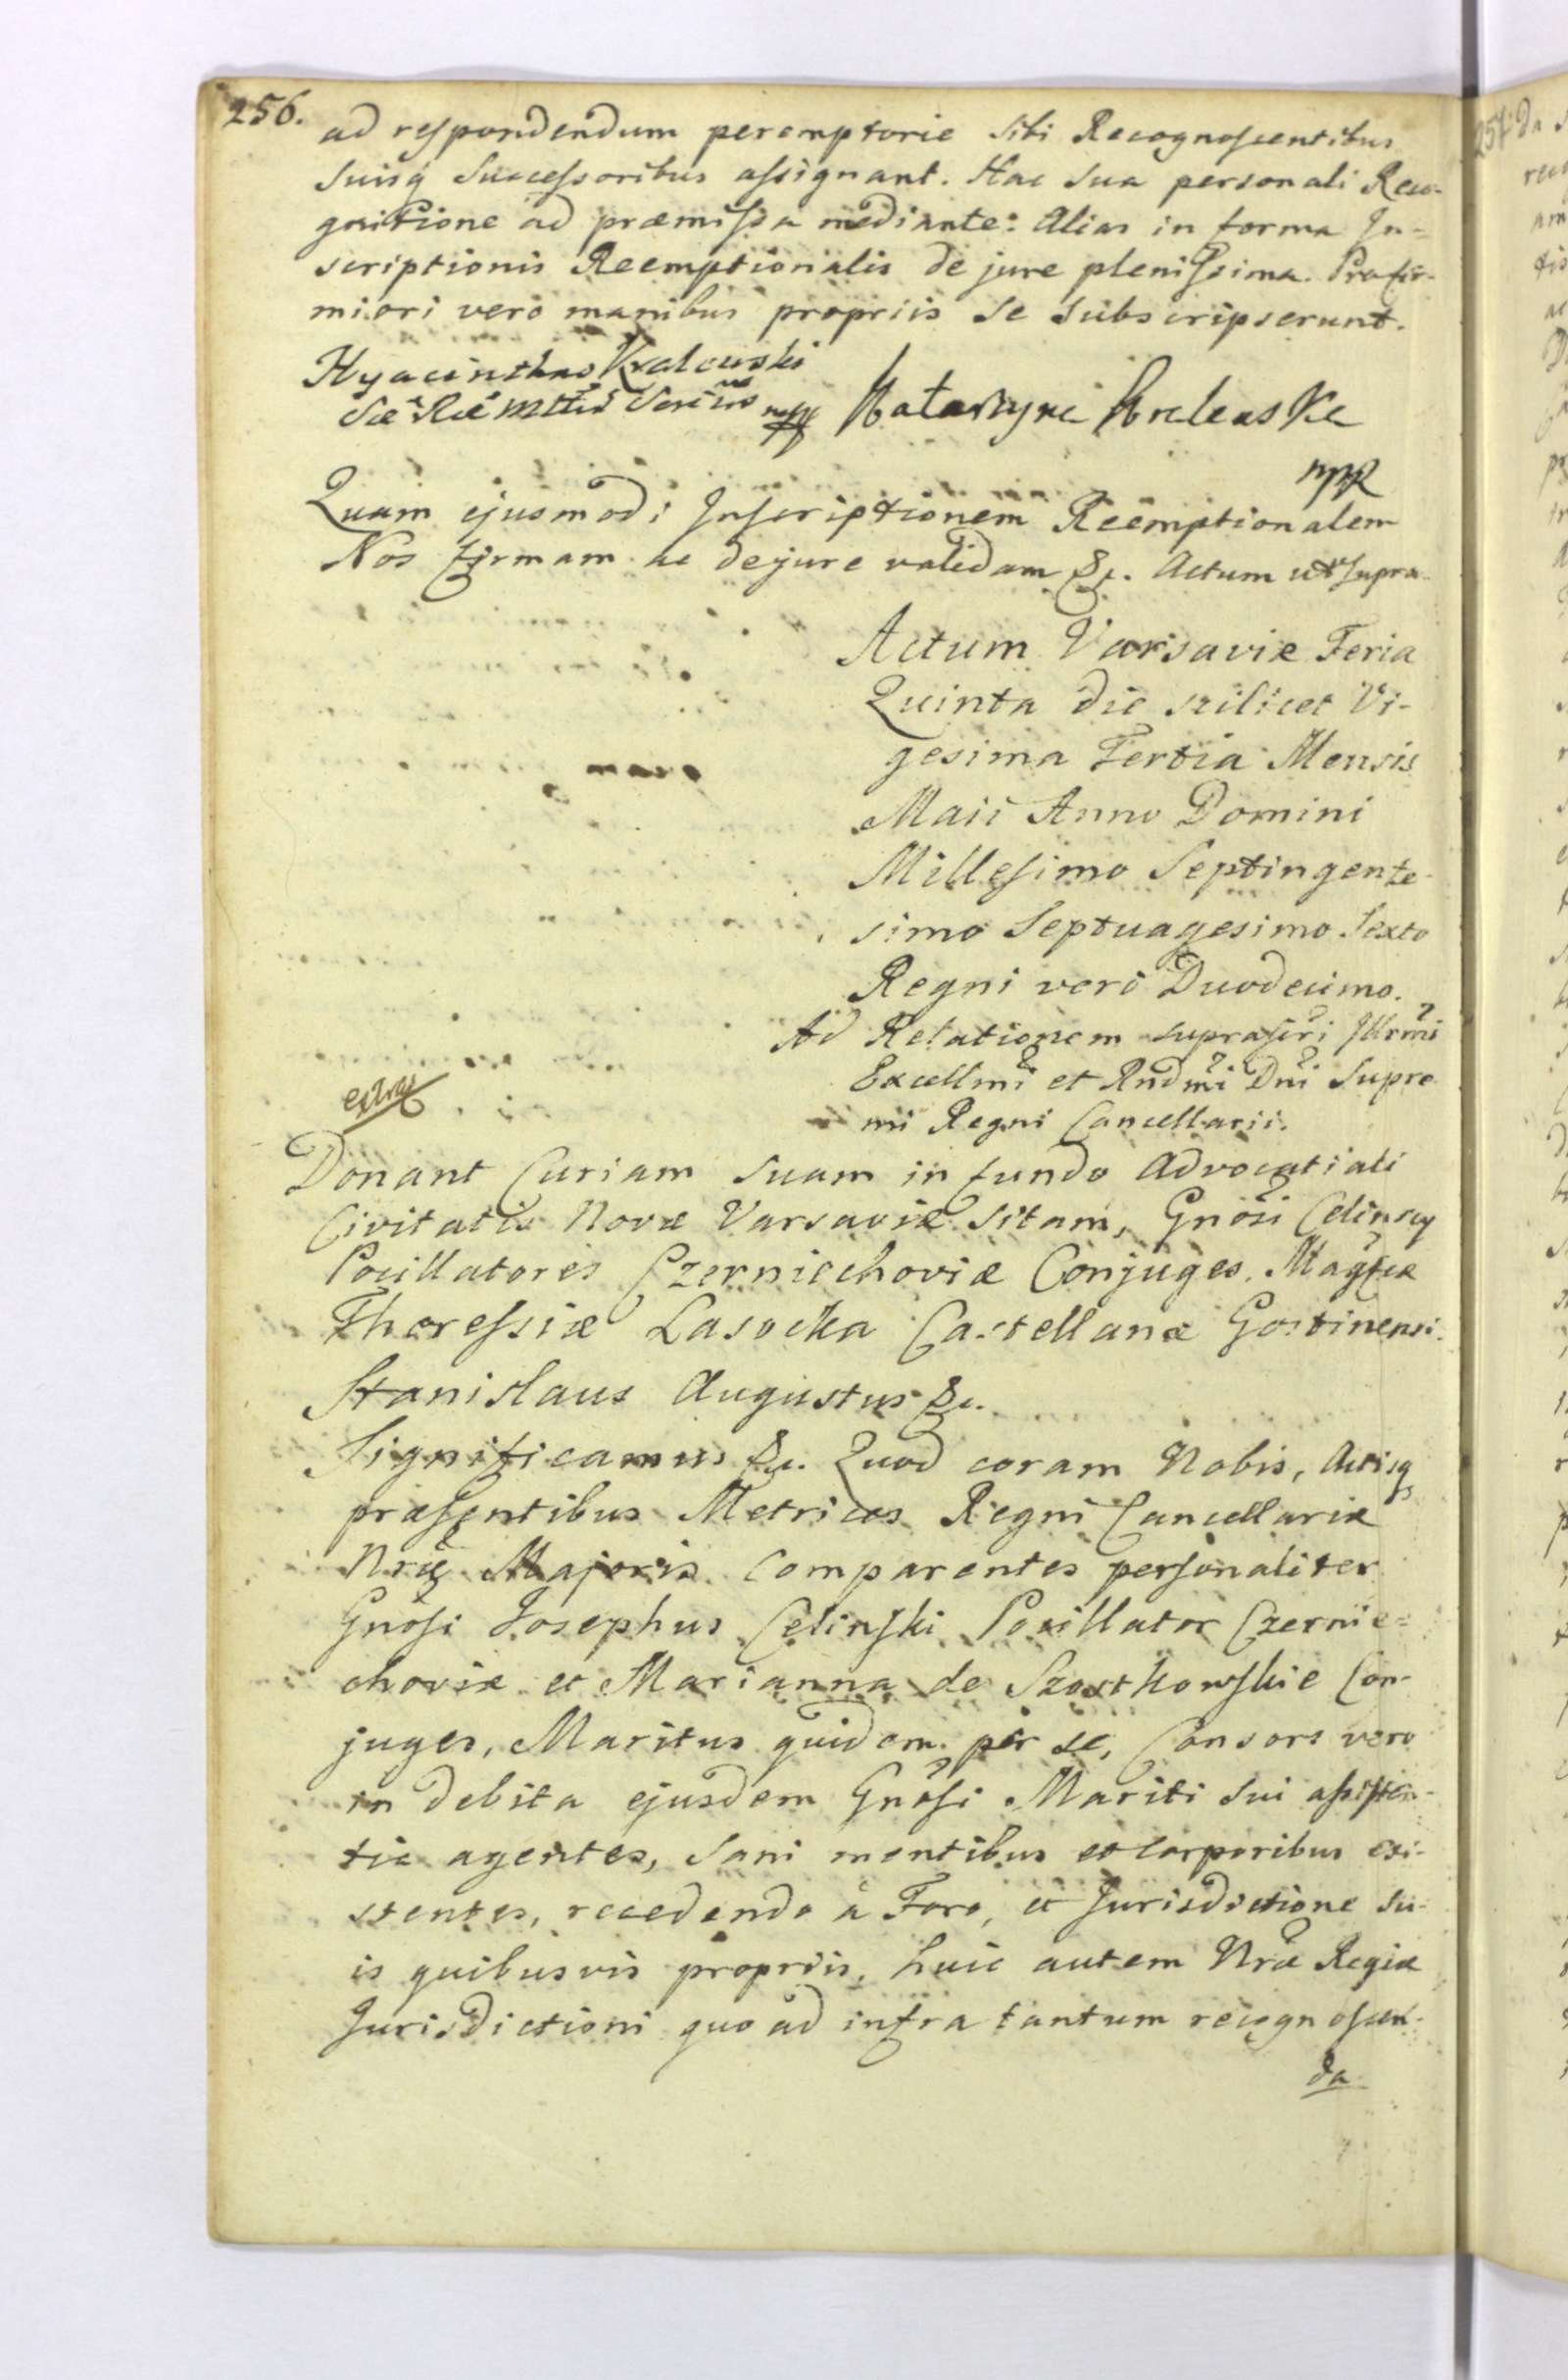 256.
ad respondendum peremptorie sibi Recognoscentibus
suisq Successoribus assignant. Hac sua personali Reco-
gnitione ad præmissa mediante: Alias in forma In-
scriptionis Reemptionalis de jure plenissima. Pro fir-
miori vero manibus propriis se subscripserunt.
Hyacinthus Kralewski
Sæ Ræ Mttis mpp Katarzyna Kralewska
mpp
Quam ejusmodi Inscriptionem Reemptionalem
Nos firmam ac de jure validam &c. Actum ut supra
Actum Varsaviæ Feria
Quinta die scilicet Vi-
gesima Tertia Mensis
Maii Anno Domini
Millesimo Septingente-
simo Septuagesimo Sexto
Regni vero Duodecimo.
Ad Relationem suprascri Illrmi
Excellmi et Rndmi Dni Supre
mi Regni Cancellarii.
extra
Donant Curiam suam in fundo Advocatiali
Civitatis Novæ Varsaviæ sitam, Gnosi Celinscy
Pocillatores Czerniechoviæ Conjuges, Magficæ
Theressiæ Lasocka Castellanæ Gostinensi.
Stanislaus Augustus &c.
Significamus &c. Quod coram Nobis, Actisq
præsentibus Metrices Regni Cancellariæ
Nræ Majoris Comparentes personaliter
Gnosi Josephus Celinski Pocillator Czernie-
choviæ et Marianna de Szostkowskie Con-
juges, Maritus quidem per se, Consors vero
in debita ejusdem Gnosi Mariti sui assisten-
tia agentes, Sani mentibus et Corporibus exi-
stentes, recedendo a Foro, et Jurisdictione su-
is quibusvis propriis, huic autem Nræ Regiæ
Jurisdictioni quo ad infra tantum recognoscen-
da